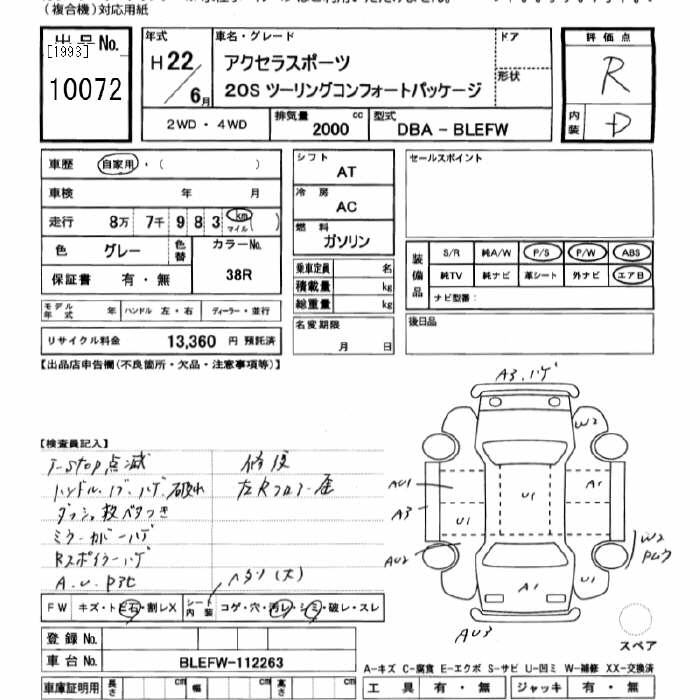 (複合機)対応用紙
出品No.
[1993]
10072
年式
H22/6月
車名・グレード
アクセラスポーツ
20S ツーリングコンフォートパッケージ
ドア
形状
評価点
R
内装
D
2WD・4WD
排気量 2000 cc
型式 DBA-BLEFW
車歴 自家用・( )
車検 年 月
走行 8万 7千 9 8 3 km マイル( )
色 グレー 色替
カラーNo. 38R
保証書 有・無
モデル年式 年 ハンドル 左・右 ディーラー・並行
リサイクル料金 13,360 円 預託済
シフト AT
冷房 AC
燃料 ガソリン
乗車定員 名
積載量 kg
総重量 kg
名変期限
月 日
セールスポイント
装備品
S/R 純A/W P/S P/W ABS
純TV 純ナビ 革シート 外ナビ エアB
ナビ型番:
後日品
【出品店申告欄(不良箇所・欠品・注意事項等)】
【検査員記入】
i-stop 点滅
ハンドル、ノブ、ハゲ、破れ
ダッシュ板ベタつき
ミラーカバーハゲ
Rスポイラーハゲ
A.U.
修復
左Rフロアー
ヘタリ(大)
FW キズ・トビ石・割レX シート内装 コゲ・穴・汚レ・シミ・破レ・スレ
登録No.
車台No. BLEFW-112263
車庫証明用 長さ cm 幅 cm 高さ cm
A3.ハゲ
W2
AU1
A3
U1
U1
A1
AU2
W2
U1
A1
AU3
スペア
A-キズ C-腐食 E-エクボ S-サビ U-凹ミ W-補修 XX-交換済
工具 有・無 ジャッキ 有・無